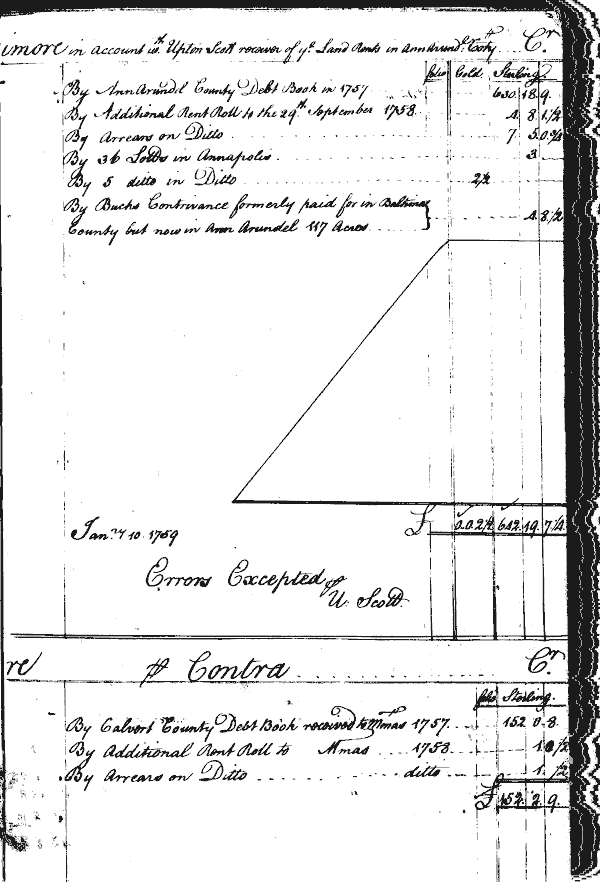 imore in account wth. Upton Scott receiver of ye. Land Rents in Ann Arundl. Coty. Cr
folio Gold Sterling
By Ann Arundel County Debt Book in 1757 630.18.9.
By Additional Rent Roll to the 29th September 1758 4 8 1 1/2
By Arrears on Ditto 7 5.0 3/4
By 36 Lotts in Annapolis 3
By 5 ditto in Ditto 2/2
By Buchs Contrivance formerly paid for in Baltimore
County but now in Ann Arundel 117 Acres 4.8 1/2
£ 0.0.2/2 642.19.7 1/4
Jan.ry 10. 1759
Errors Excepted
U. Scott.
re Contra Cr
folio Sterling.
By Calvert County Debt Book received to Mmas 1757 152 0.8.
By Additional Rent Roll to Mmas 1758
By Arrears on Ditto ditto 1. 1/2
£ 152. 2. 9.